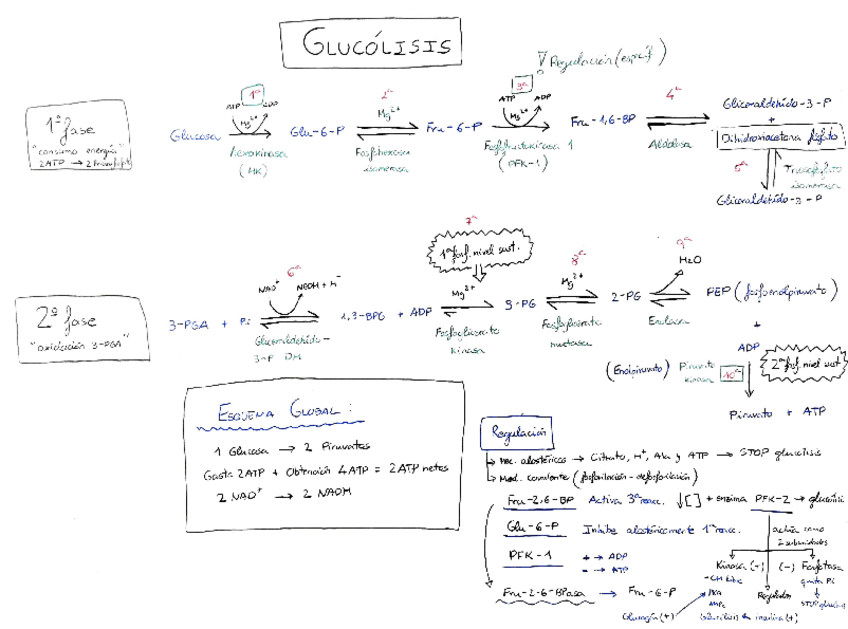 GLUCÓLISIS
Regulación (específ)
1ª fase
"consumo energía"
2ATP → 2
ATP ADP
1ª
Mg²⁺
2ª
Mg²⁺
3ª
ATP ADP
Mg²⁺
4ª
Glucosa
Glu-6-P
Fru-6-P
Fru-1,6-BP
Gliceraldehído-3-P
+
Dihidroxiacetona fosfato
Hexokinasa
(HK)
Fosfohexosa
isomerasa
Fosfofructokinasa 1
(PFK-1)
Aldolasa
5ª
Triosafosfato
isomerasa
Gliceraldehído-3-P
7ª
1ª fosf. nivel sust.
6ª
NAD⁺ NADH + H⁺
Mg²⁺
8ª
Mg²⁺
9ª
H₂O
2ª fase
"oxidación 3-PGA"
3-PGA + Pi
1,3-BPG + ADP
3-PG
2-PG
PEP (fosfoenolpiruvato)
Gliceraldehído-
3-P DH
Fosfoglicerato
kinasa
Fosfoglicerato
mutasa
Enolasa
+
ADP
(Enolpiruvato) Piruvato
kinasa
10ª
2ª fosf. nivel sust
Piruvato + ATP
ESQUEMA GLOBAL:
1 Glucosa → 2 Piruvatos
Gasta 2ATP + Obtención 4ATP = 2ATP netos
2 NAD⁺ → 2 NADH
Regulación
Mec. alostéricos → Citrato, H⁺, Ala y ATP → STOP glucolisis
Mod. covalente (fosforilación - defosforilación)
Fru-2,6-BP Activa 3ª reacc. ↓[ ] + enzima PFK-2 → glucólisis
Glu-6-P Inhibe alostéricamente 1ª reacc.
actúa como
2 subunidades
PFK-1 + → ADP
- → ATP
Kinasa (+) (-) Fosfatasa
quita Pi
PKA
AMPc
Regulador
STOP glucólisis
Fru-2-6-BPasa → Fru-6-P
Glucagón (+)
Glucólisis ← insulina (+)